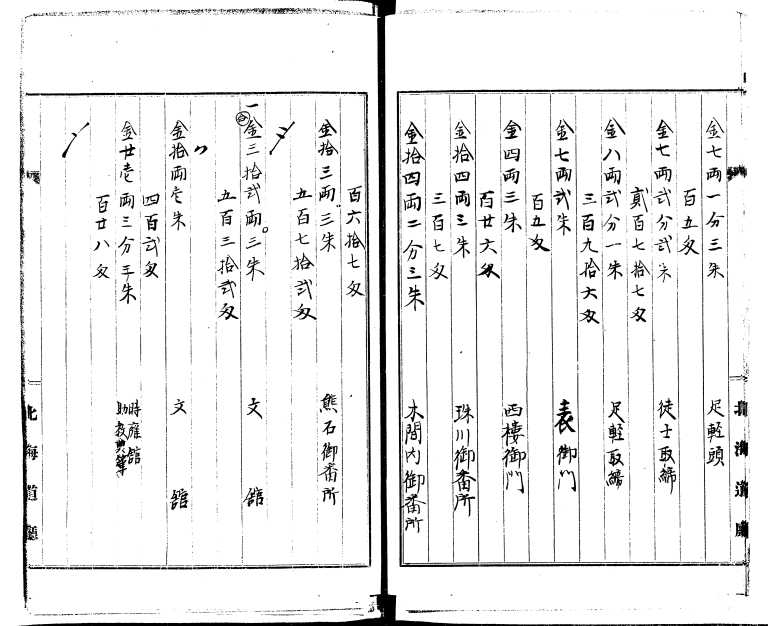 金七両一分三朱
足軽頭
百五匁
金七両弐分弐朱
徒士取締
貳百七拾七匁
金八両弐分一朱
足軽取締
三百九拾六匁
金七両弐朱
表御門
百五匁
金四両三朱
西楼御門
百廿六匁
金拾四両三朱
珠川御番所
三百七匁
金拾四両二分三朱
木間内御番所
北海道廳
百六拾七匁
金拾三両三朱
熊石御番所
五百七拾弐匁
一金三拾弐両三朱
文館
五百三拾弐匁
金拾両壱朱
文館
四百弐匁
金廿壱両三分三朱
時雍館
助教典簿
百廿八匁
北海道廳